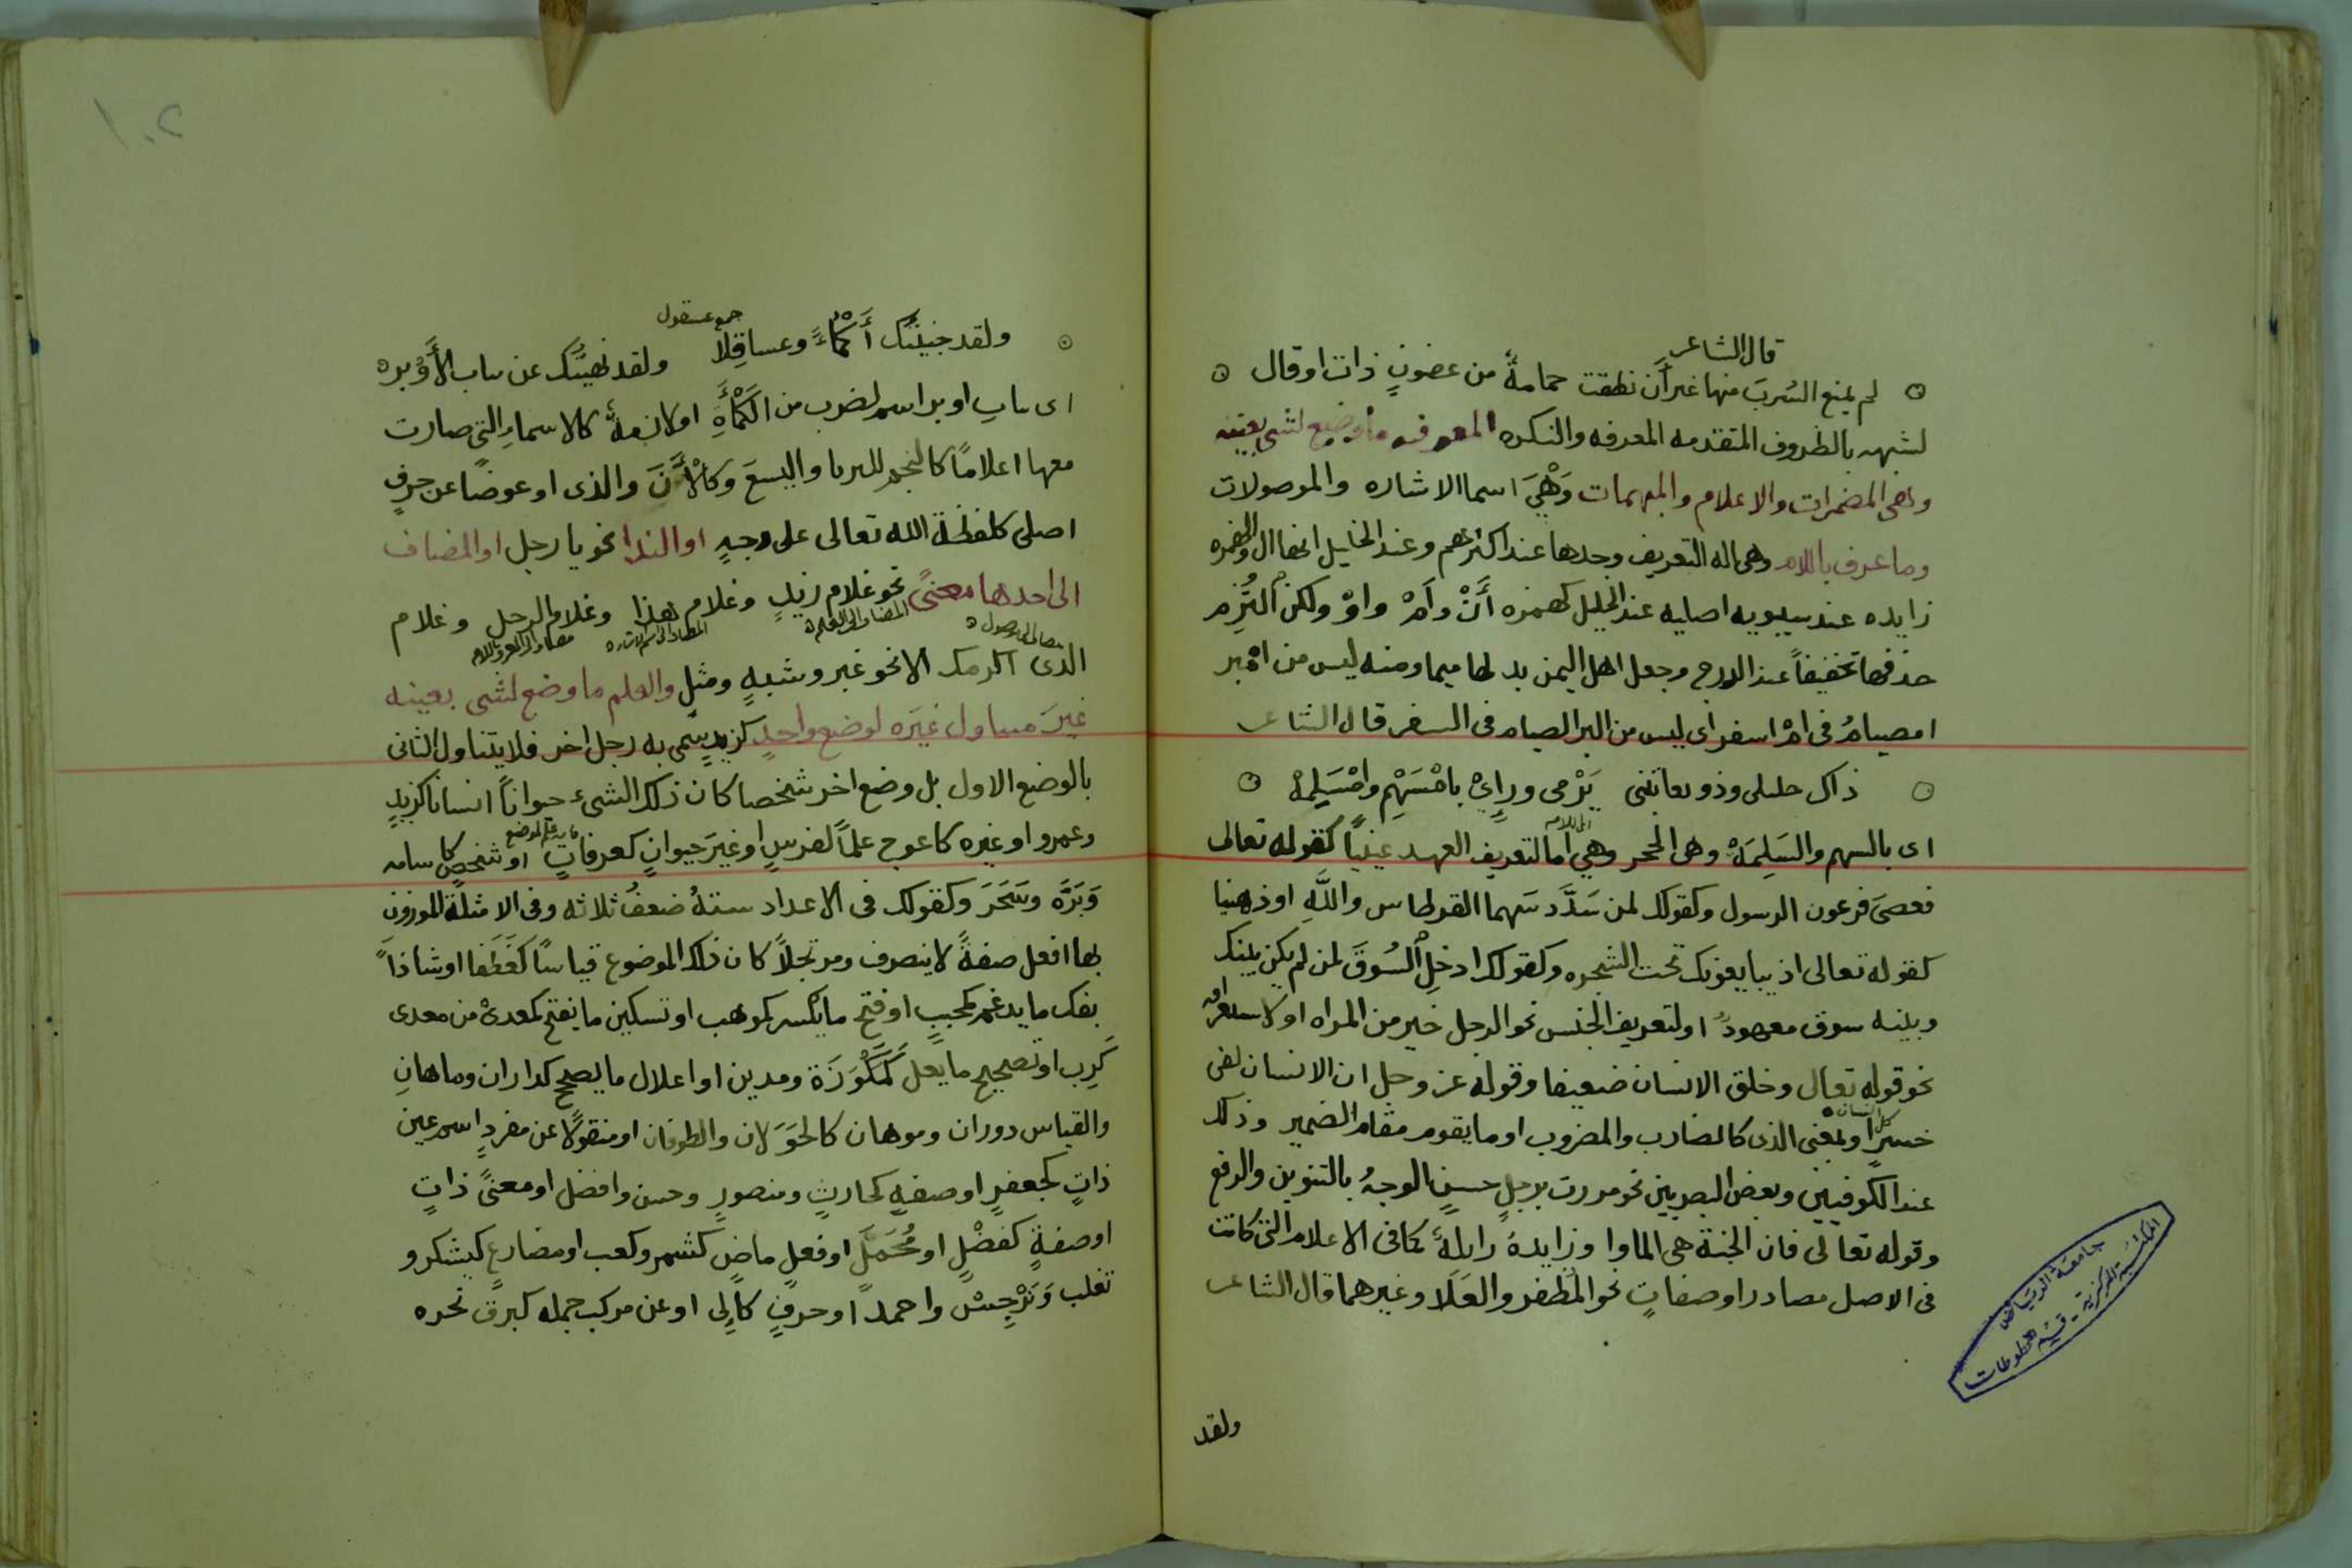 قال الشاعر
لم يمنع الشرب منها غير أن نطقت حمامةٌ من غصونٍ ذات اوقال
لشبهه بالظروف المتقدمه المعرفه والنكره المعرفه ما وضع لشى بعينه
وهى المضمرات والاعلام والمبهمات وَهْيَ اسما الاشاره والموصولات
وما عرف باللام وهى اله التعريف وحدها عند اكثرهم وعند الخليل انها ال والهمزه
زايده عند سيبويه اصليه عند الخليل كهمزه أَنْ وأَمْ واوْ ولكن اُلتُزِم
حذفها تخفيفاً عند الدرج وجعل اهل اليمن بدلها ميما ومنه ليس من امْبر
امصيامُ فى امْ اسفر اى ليس من البر الصيام فى السفر قال الشاعر
ذاك خليلى وذو يعاتبنى يَرْمى ورايِىْ بامْسَهْمِ وامْسَلِمهْ
اى بالسهم والسَلِمَهْ وهى الحجر وهي أما لتعريف العهد عينياً كقوله تعالى
فعصىَ فرعون الرسول وكقولك لمن سَدَّدَ سَهما القرطاس واللَّهِ اوذهنيا
كقوله تعالى اذ يبايعونك تحت الشجره وكقولك ادخلِ السُوقَ لمن لم يكن بينك
وبينه سوق معهودٌ او لتعريف الجنس نحو الرجل خير من المراه او لاستغراقه
نحو قوله تعالى وخلق الانسان ضعيفا وقوله عز وجل ان الانسان لفى
كل انسان
خسرٍ او بمعنى الذى كالضارب والمضروب او ما يقوم مقام الضمير وذلك
عند الكوفيين وبعض البصريين نحو مررت برجلٍ حسنٍ الوجهُ بالتنوين والرفع
وقوله تعالى فان الجنة هى الماوا وزايدةٌ زايلةٌ كما فى الاعلام التى كانت
فى الاصل مصادر او صفاتٍ نحو المظفر والعَلَا وغيرهما قال الشاعر
ولقد
جامعة الرياض
المكتبة المركزية - قسم المخطوطات
١٠٢
جمع عسقول
ولقد جنيتُك أَكْمُاءً وعساقِلاً ولقد نهيتُك عن بنات الأَوْبره
اى بناتِ اوبر اسم لضرب من الكَمْأَةِ او لازمةٌ كالاسماءِ التى صارت
معها اعلامًا كالنجم للثريا واليسعَ وكالأنَ والذى او عوضًا عن حرفٍ
اصلى كلفظة الله تعالى على وجهٍ او الندا نحو يا رجل او المضاف
الى احدها معنىً نحو غلام زيدٍ وغلام هذا وغلام الرجل وغلام
المضاف الى العلم
الذى اكرمك الا نحو غير وشبهٍ ومثلٍ والعلم ما وضع لشى بعينه
غيرَ متناول غيَره لوضع واحدٍ كزيدٍ سمى به رجل اخر فلا يتناول الثانى
بالوضع الاول بل وضع اخر شخصا كان ذلك الشىء حيواناً انسانا كزيدٍ
وعمرو او غيره كاعوج علماً لفرسٍ او غيَر حيوانٍ كعرفاتٍ او شخصٍ كاسامه
وَبَرَّه وسَحَرَ وكقولك فى الاعداد ستةُ ضعفُ ثلاثه وفى الامثلة الموزون
بها افعل صفةً لاينصرف ومرتجلاً كان ذلك الموضوع قياسًا كغَطَفا اوشاذاً
بفك ما يدغم كمحببٍ او فتح مايكسر كموهب او تسكين ما يفتح كمعدىْ من معدى
كَرِب او تصحيح ما يعل كمَكْوَزَة ومدين او اعلال ما يصحح كداران وماهانِ
والقياس دوران وموهان كالحَوَلان والطوفان او منقولًا عن مفردٍ اسم عين
ذاتٍ كجعفرٍ او صفهٍ كحارثٍ ومنصورٍ وحسن وافضل او معنىً ذاتٍ
او صفةٍ كفضْلٍ او مُحَمَّلٍ او فعلٍ ماضٍ كشمر وكعب او مضارعٍ كيشكر و
تغلب وَنَرْجِسْ واحمد او حرفٍ كالى او عن مركب جمله كبرق نحره